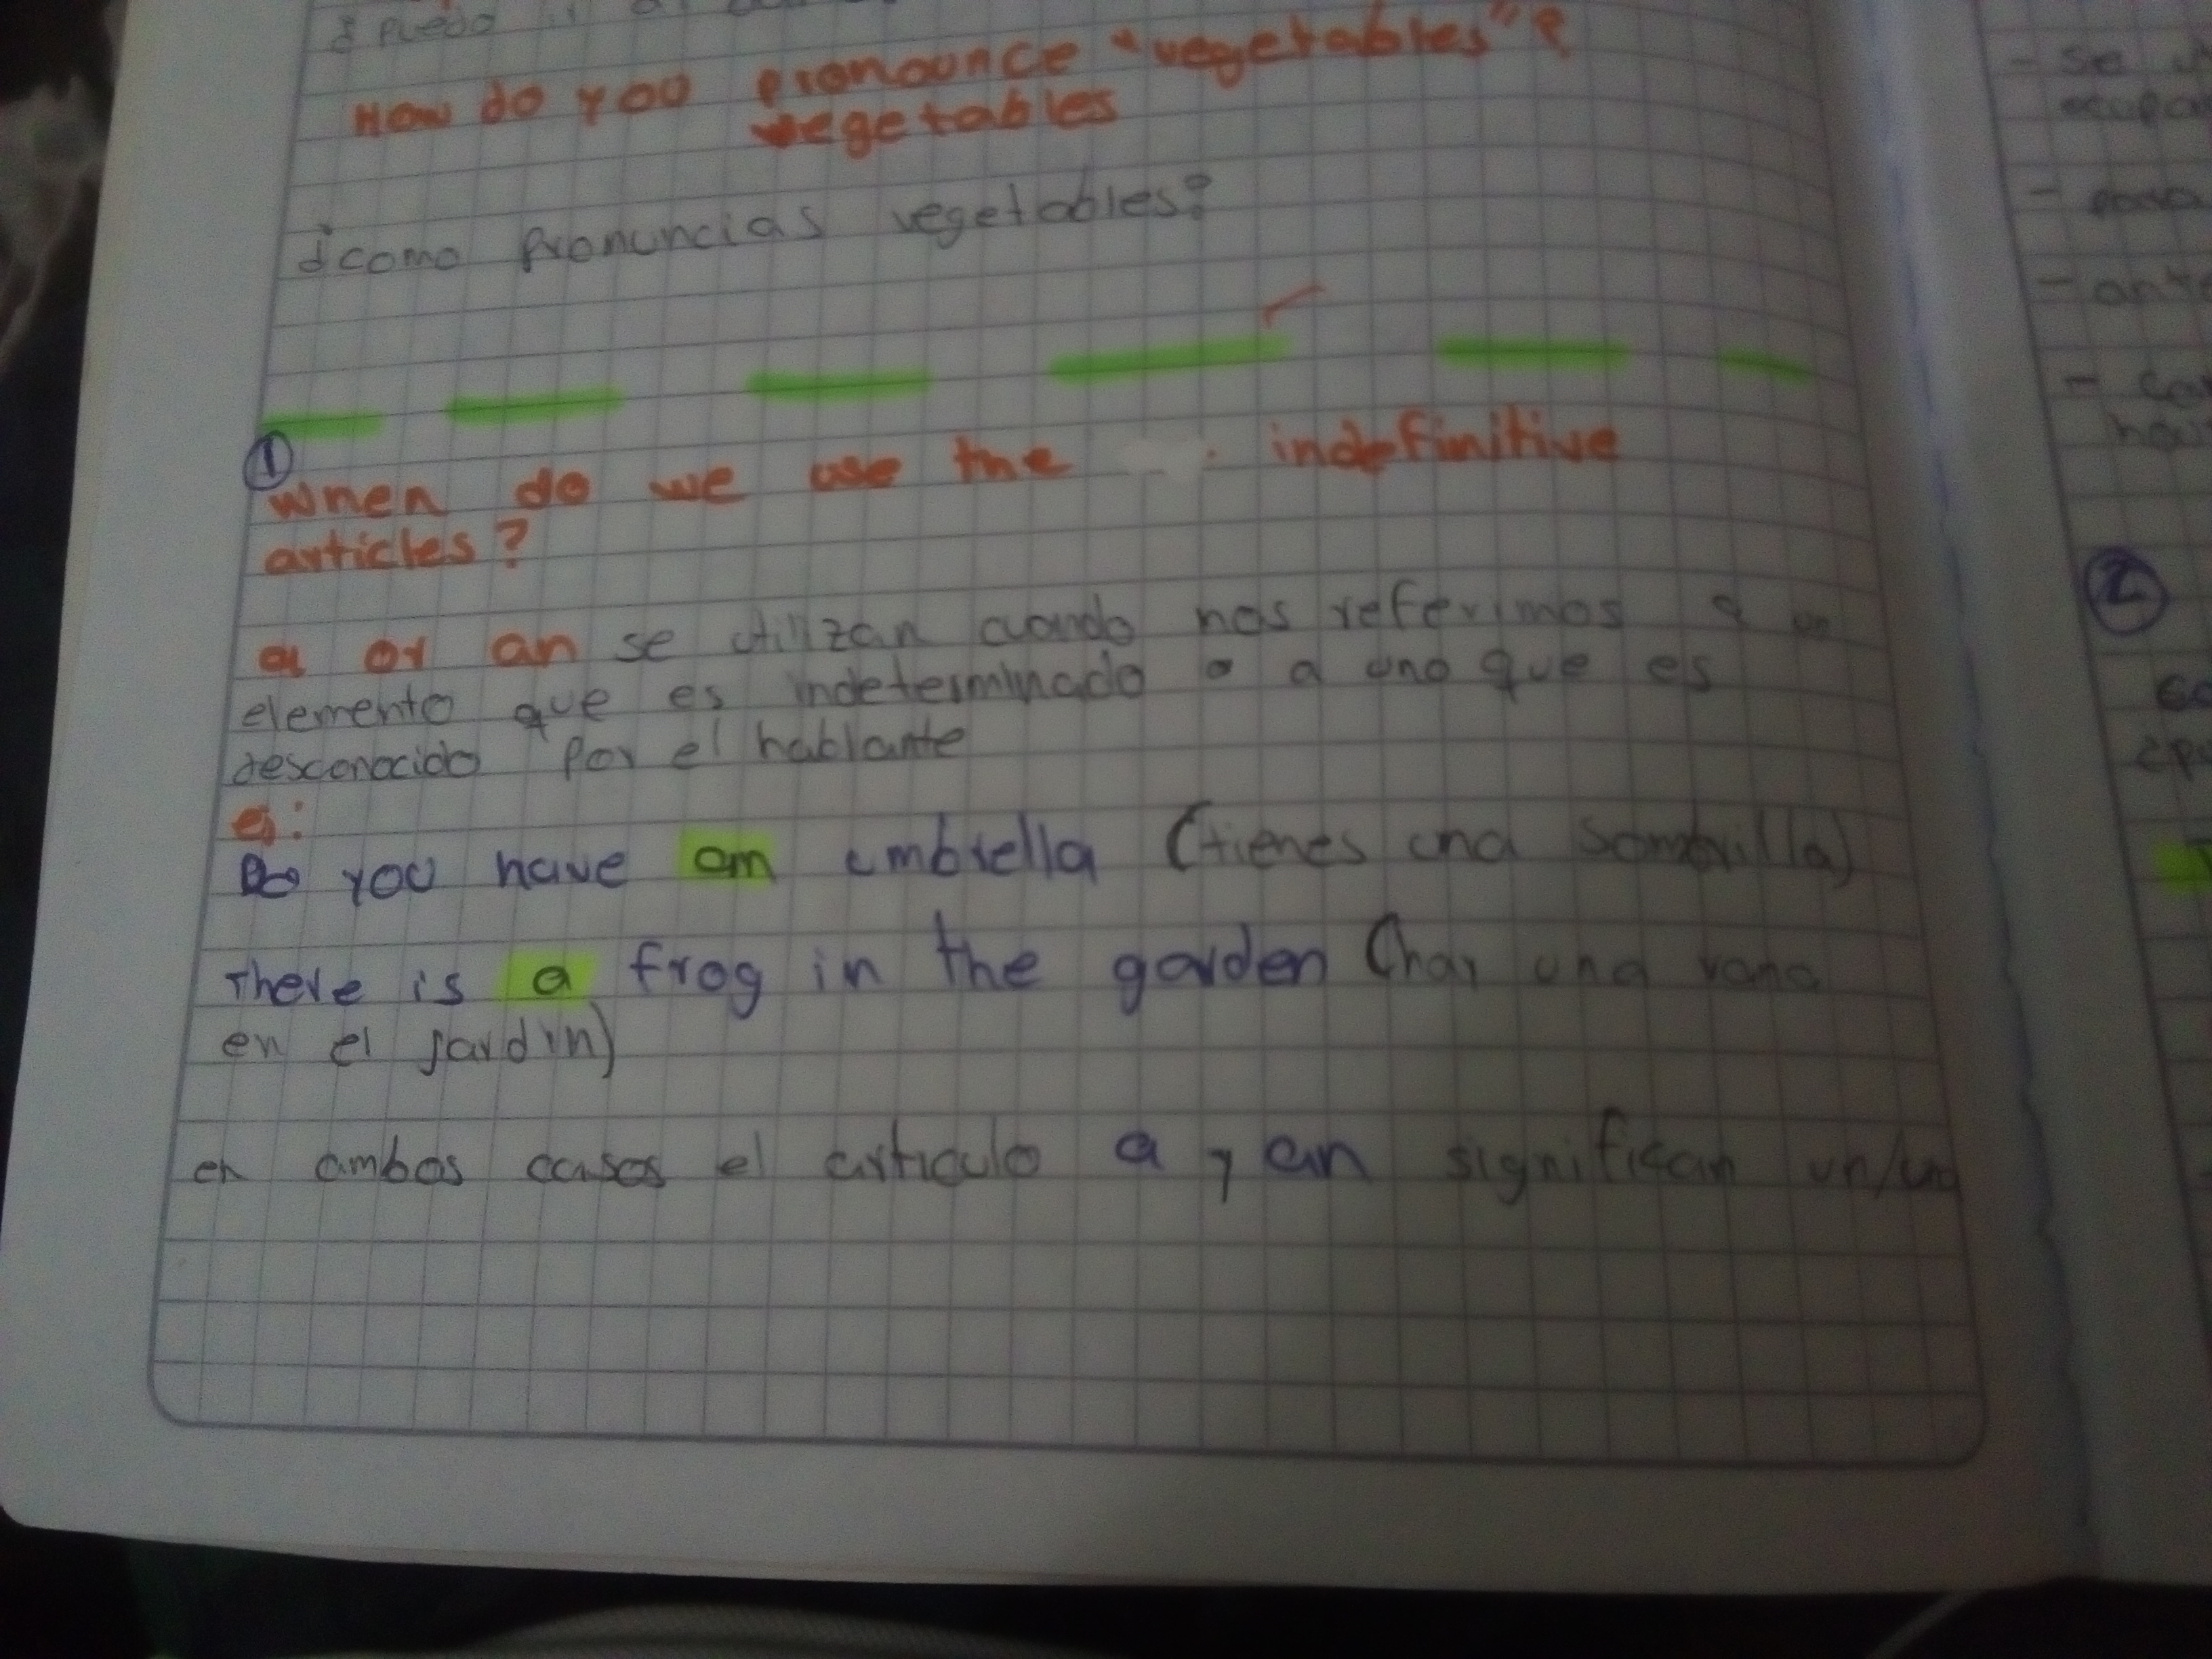 ¿Puedo
How do you pronounce "vegetables"?
vegetables
¿como Pronuncias vegetables?
① When do we use the indefinitive
articles?
a or an se utilizan cuando nos referimos a un
elemento que es indeterminado o a uno que es
desconocido por el hablante
ej:
Do you have an umbrella (tienes una sombrilla)
There is a frog in the garden (hay una rana
en el jardin)
en ambos casos el articulo a y an significan un/una
- se
ocupa
-
- ant
-
②